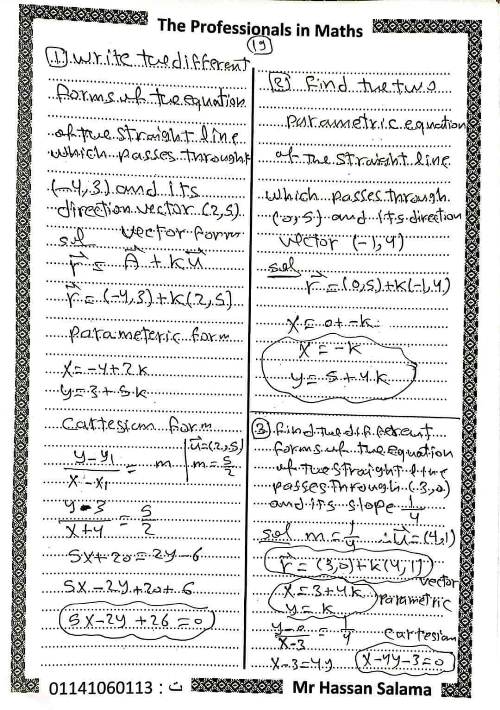 The Professionals in Maths
19
1 Write the different
forms of the equation
of the straight line
which passes through
(-4,3) and its
direction vector (2,5)
sol vector form
r = A + k u
r = (-4,3)+k(2,5)
parameteric form
x = -4+2k
y = 3+5k
Cartesian form
y-y1 / x-x1 = m | u=(2,5) m=5/2
y-3 / x+4 = 5/2
5x+20=2y-6
5x-2y+20+6
5x-2y+26=0
2 Find the two
parametric equation
of the straight line
which passes through
(0,5) and its direction
vector (-1,4)
sol r = (0,5)+k(-1,4)
x = 0+-k
x = -k
y = 5+4k
3 Find the different
forms of the equation
of the straight line
passes through (3,0)
and its slope 1/4
sol m = 1/4 ∴ u = (4,1)
r = (3,0)+k(4,1) vector
x = 3+4k parametric
y = k
y-0 / x-3 = 1/4 Cartesian
x-3=4y x-4y-3=0
01141060113 : ت
Mr Hassan Salama